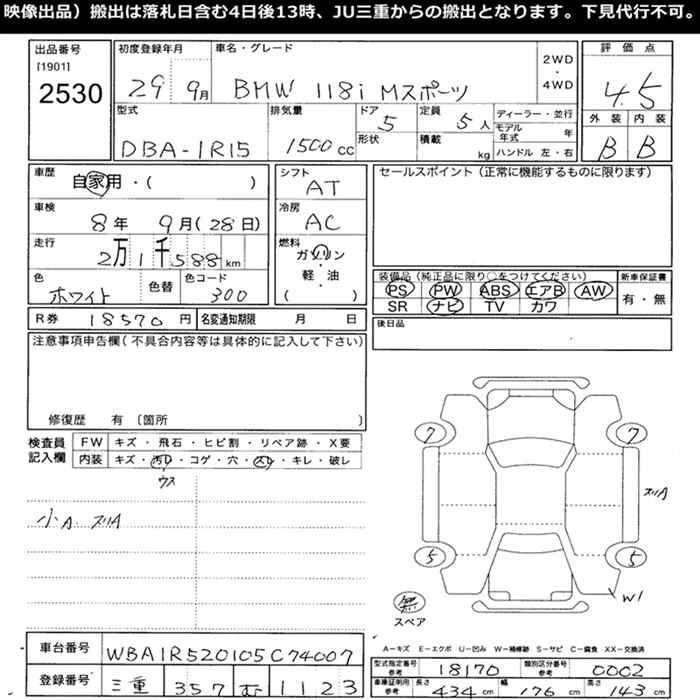 映像出品）搬出は落札日含む4日後13時、JU三重からの搬出となります。下見代行不可。
出品番号 初度登録年月 車名・グレード 評価点
[1901]
2530 29 9月 BMW 118i Mスポーツ 2WD・4WD 4.5
型式 排気量 ドア 定員 ディーラー・並行 外装 内装
DBA-1R15 1500cc 5 5人 モデル年式 年 B B
形状 積載 kg ハンドル 左・右
車歴 自家用・( ) シフト AT セールスポイント（正常に機能するものに限ります）
車検 8年 9月(28日) 冷房 AC
走行 2万1千588km 燃料 ガソリン
軽・油
( )
色 ホワイト 色替 色コード 300
装備品（純正品に限り○をつけてください） 新車保証書
PS PW ABS エアB AW 有・無
SR ナビ TV カワ
R券 18570円 名変通知期限 月 日 後日品
注意事項申告欄（不具合内容等は具体的に記入して下さい）
修復歴 有〔箇所 〕
検査員記入欄 FW キズ・飛石・ヒビ割・リペア跡・X要
内装 キズ・汚レ・コゲ・穴・スレ・キレ・破レ
ウス
小A スリA
7 7
スリA
5 5
W1
スペア
A－キズ E－エクボ U－凹み W－補修跡 S－サビ C－腐食 XX－交換済
車台番号 WBA1R520105C74007
登録番号 三重 357 む 1123
型式指定番号 参考 18170 類別区分番号 参考 0002
車庫証明用 参考 長さ 434cm 幅 176cm 高さ 143cm